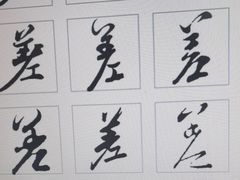 差 差 差
差 差 差